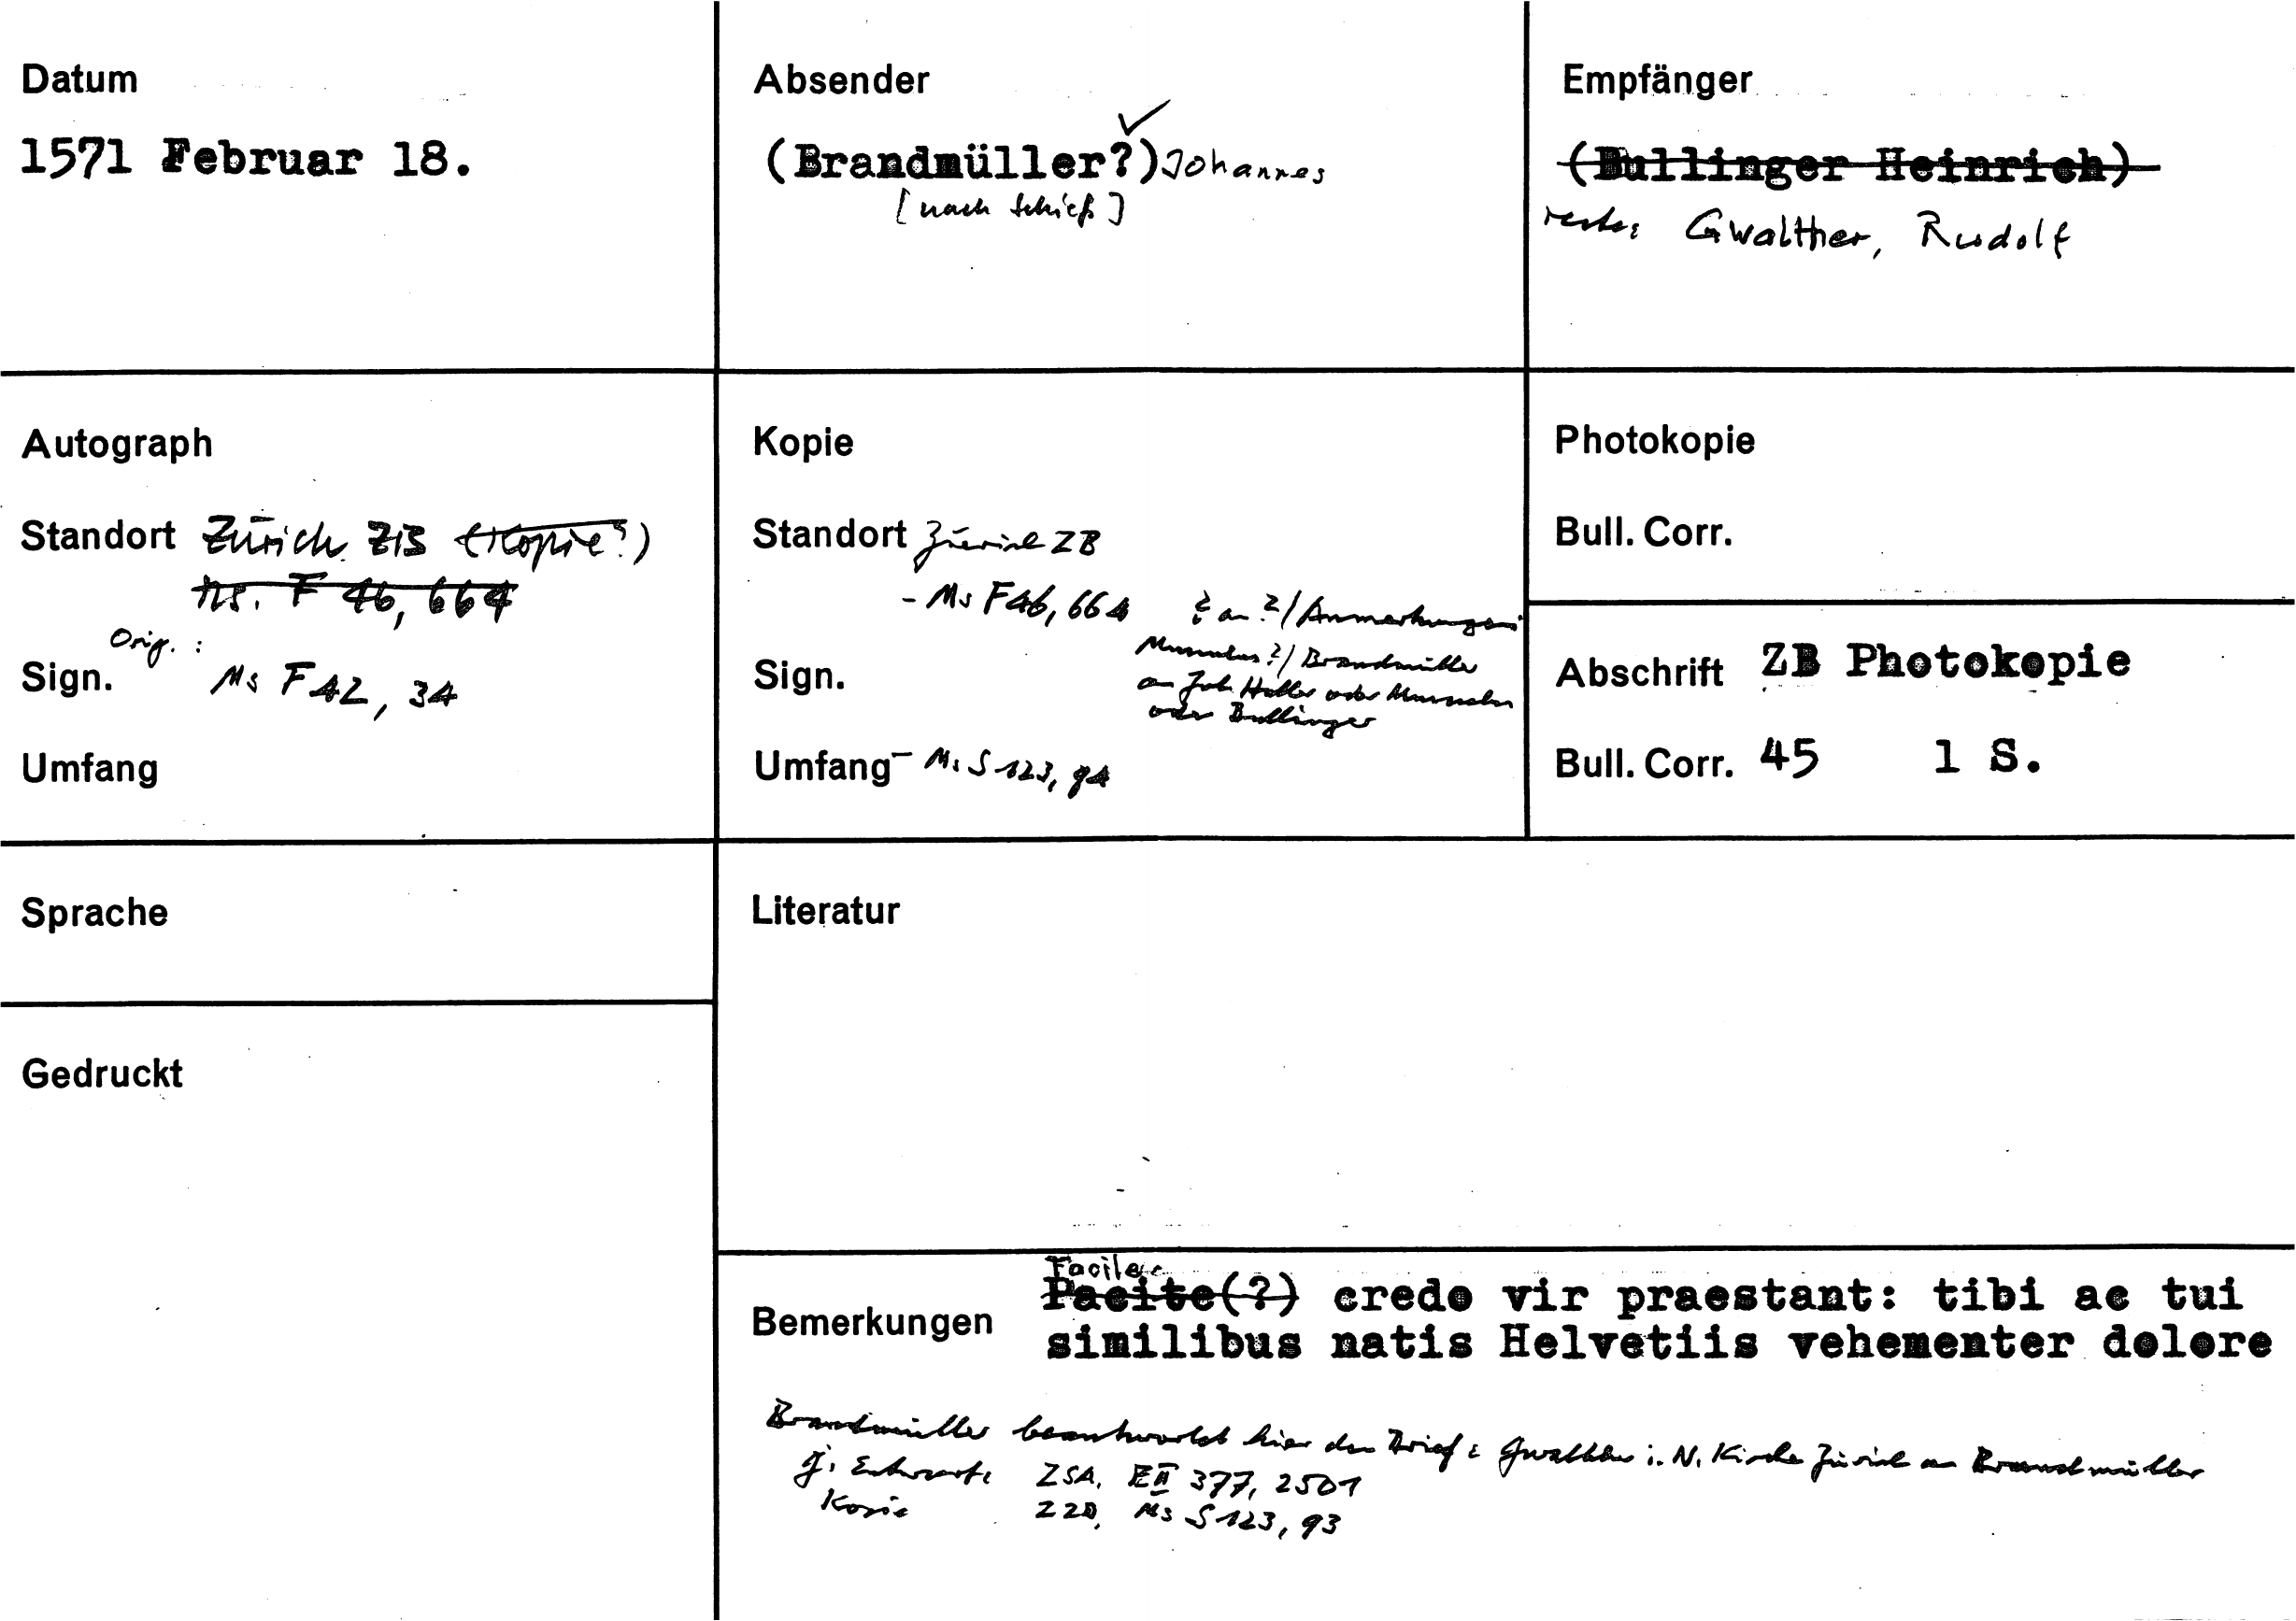 Datum
1571 Februar 18.
Absender
(Brandmüller?) Johannes
[nach Schieß]
Empfänger
(Bullinger Heinrich)
Gwalther, Rudolf
Autograph
Standort Zürich ZB (Kopie?)
Ms. F 46, 664
Orig. :
Sign. Ms F 42, 34
Umfang
Kopie
Standort Zürich ZB
- Ms F 46, 664 ? an ?/ Anmerkungen:
Musculus?/ Brandmüller
an Joh. Haller oder Musculus
oder Bullinger
Sign.
Umfang - Ms S 123, 94
Photokopie
Bull. Corr.
Abschrift ZB Photokopie
Bull. Corr. 45 1 S.
Sprache
Literatur
Gedruckt
Bemerkungen
Facile
Pacite(?) credo vir praestant: tibi ac tui
similibus natis Helvetiis vehementer dolore
Brandmüller beantwortet hier den Brief: Gwalther i. N. Kirche Zürich an Brandmüller
ZSA, E II 377, 2501
Kopie Ms S 123, 93